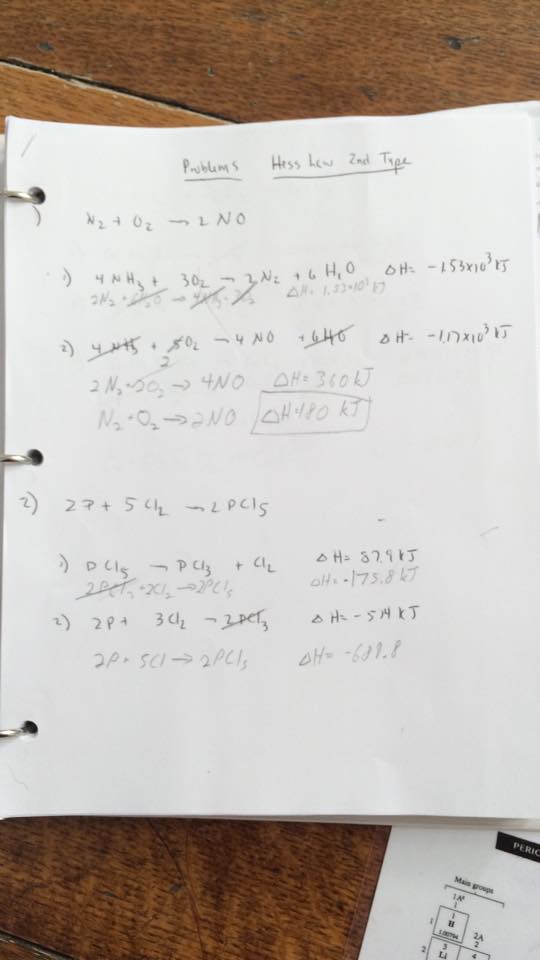 Problems Hess Law 2nd Type
1)
N2 + O2 → 2 NO
1) 4 NH3 + 3O2 → 2 N2 + 6 H2O ΔH= -1.53x10³ kJ
2N2 + 6H2O → 4NH3 + 3O2 ΔH= 1.53x10³ kJ
2) 4 NH3 + 5O2 → 4 NO + 6H2O ΔH= -1.17x10³ kJ
2
2N2 + 2O2 → 4NO ΔH= 360 kJ
N2 + O2 → 2NO ΔH=180 kJ
2) 2P + 5 Cl2 → 2 PCl5
1) PCl5 → PCl3 + Cl2 ΔH= 87.9 kJ
2PCl3 + 2Cl2 → 2PCl5 ΔH= -175.8 kJ
2) 2P + 3Cl2 → 2PCl3 ΔH= -574 kJ
2P + 5Cl → 2PCl5 ΔH= -689.8
PERIO
Main groups
1A
1
1
1
H
1.00794
2A
2
2
3
Li
4